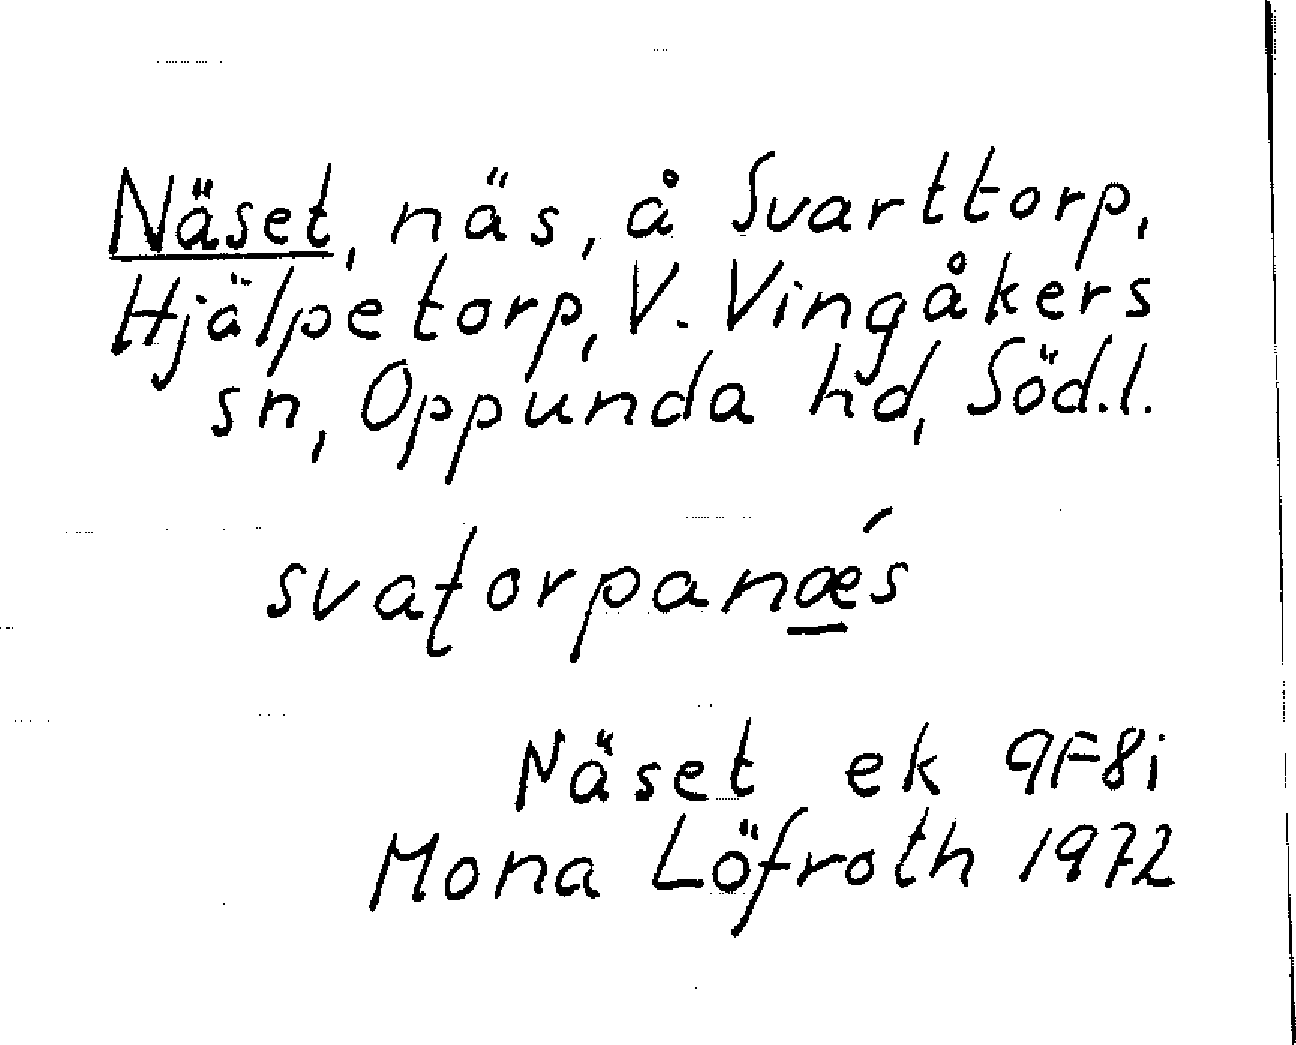 Näset, näs, å Svarttorp,
Hjälpetorp, V. Vingåkers
sn, Oppunda hd, Söd.l.
svaƫorpanǽ̲s
Näset ek 9F8i
Mona Löfroth 1972